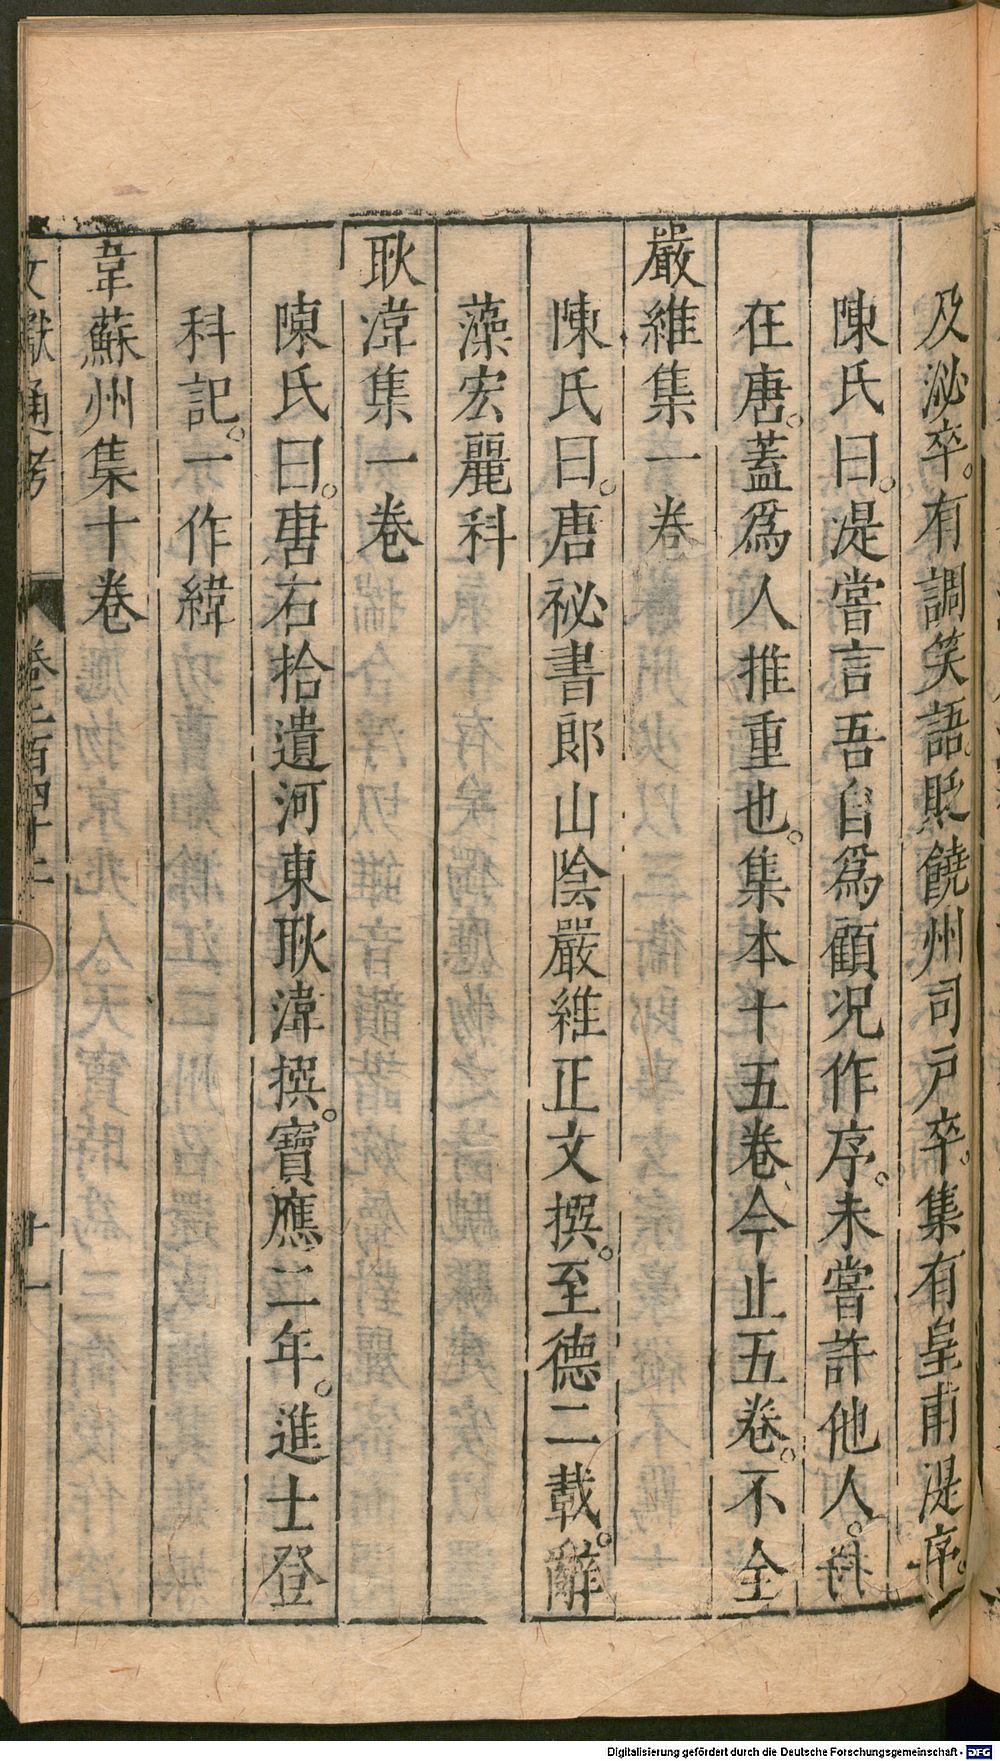 及泌卒。有調笑語。貶饒州司戸卒。集有皇甫湜序。
陳氏曰。湜嘗言吾自爲顧況作序。未嘗許他人。
在唐。蓋爲人推重也。集本十五卷、今止五卷。不全
嚴維集一卷
陳氏曰。唐祕書郎山陰嚴維正文撰。至德二載。辭
藻宏麗科
耿湋集一卷
陳氏曰。唐右拾遺河東耿湋撰。寶應二年。進士登
科記。一作緯
韋蘇州集十卷
文獻通考 卷二百四十二 十一
Digitalisierung gefördert durch die Deutsche Forschungsgemeinschaft - DFG